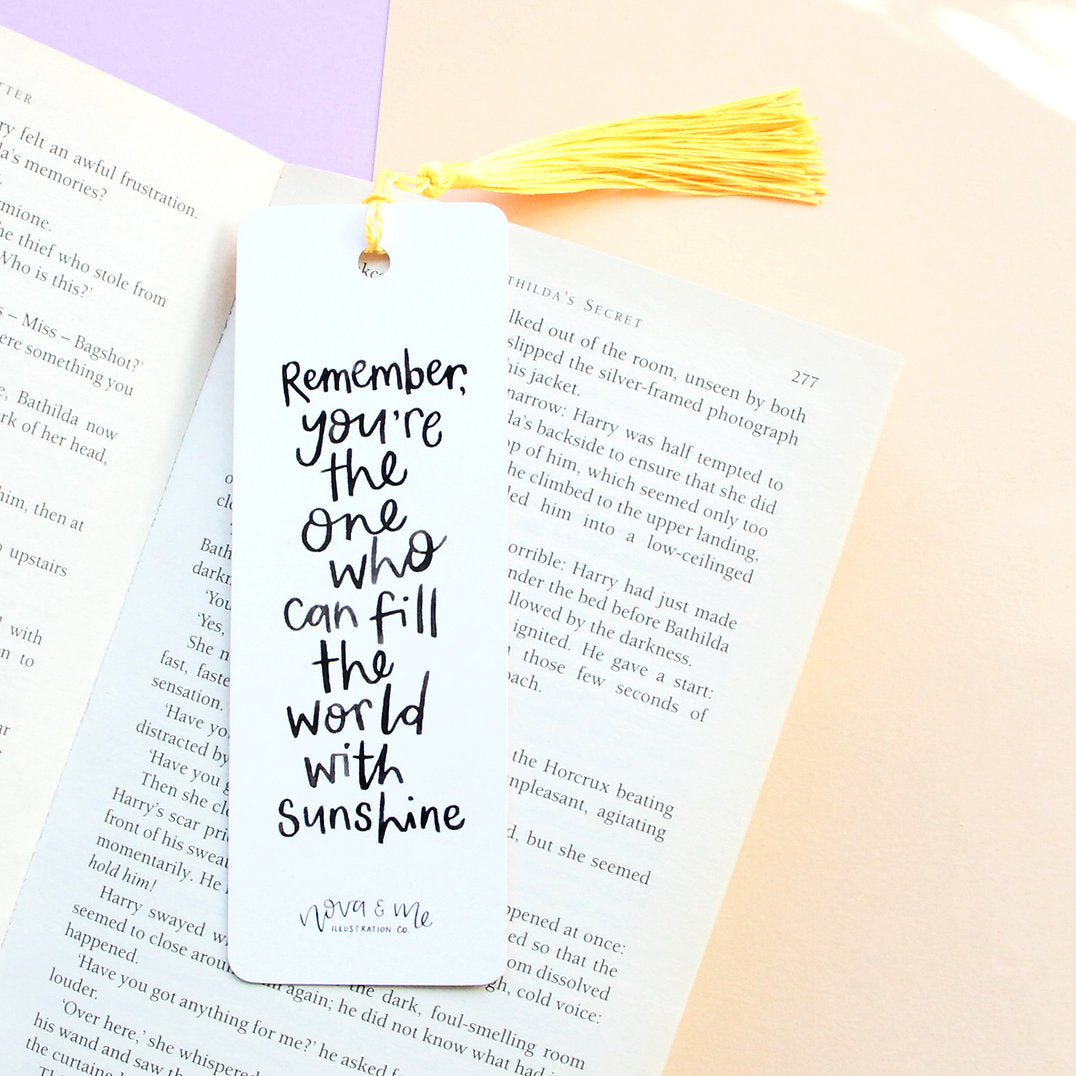 TTER
ry felt an awful frustration.
da's memories?
rmione.
he thief who stole from
Who is this?'
s – Miss – Bagshot?'
ere something you
e, Bathilda now
rk of her head,
him, then at
o upstairs
d with
n to
ar
Remember,
you're
the
one
who
can fill
the
world
with
sunshine
nova & me
ILLUSTRATION CO.
THILDA'S SECRET
277
lked out of the room, unseen by both
slipped the silver-framed photograph
his jacket.
narrow: Harry was half tempted to
da's backside to ensure that she did
op of him, which seemed only too
he climbed to the upper landing,
led him into a low-ceilinged
orrible: Harry had just made
nder the bed before Bathilda
llowed by the darkness.
ignited. He gave a start:
those few seconds of
oach.
Bath
darkn
'You
'Yes,
She n
fast, faste
sensation.
the Horcrux beating
'Have yo
npleasant, agitating
distracted by
'Have you g
d, but she seemed
Then she cl
Harry's scar pri
front of his sweat
ppened at once:
momentarily. He
ed so that the
hold him!
om dissolved
Harry swayed w
gh, cold voice:
seemed to close arou
happened.
again; he did not know what had
the dark, foul-smelling room
'Have you got anything for me?' he asked
louder.
'Over here,' she whispered
his wand and saw th
the curtain